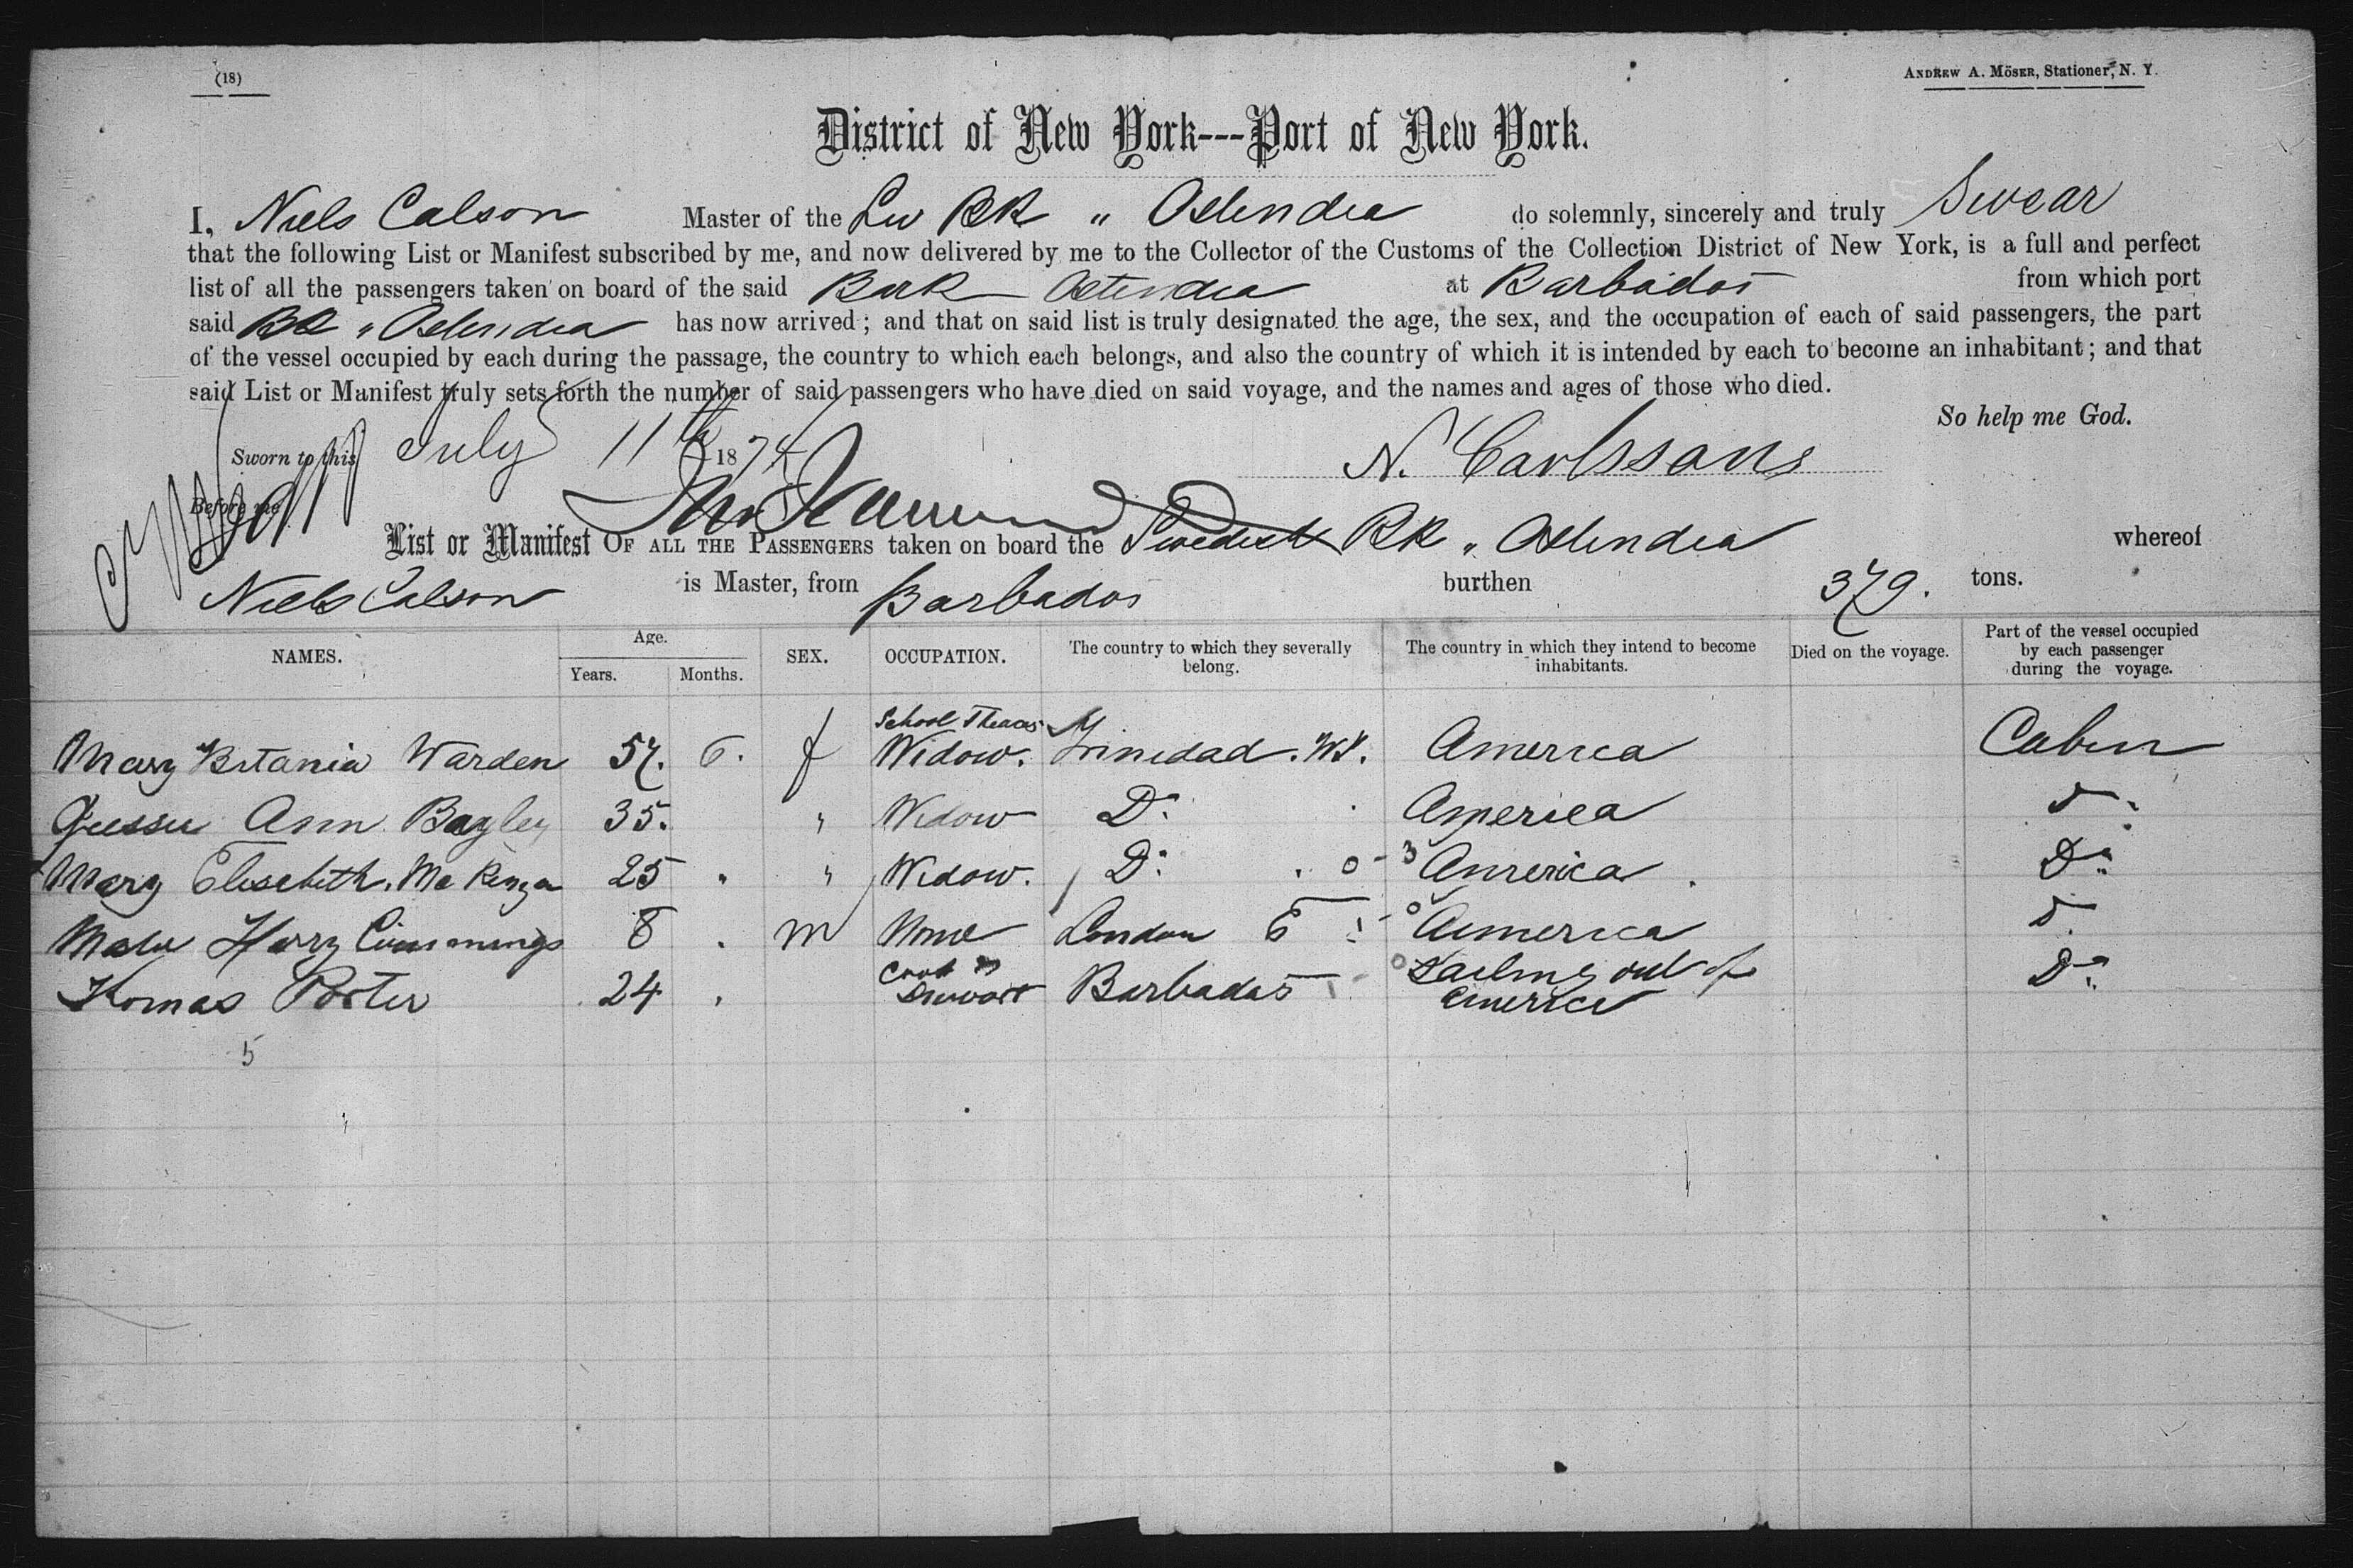 (18)
ANDREW A. MÖSER, Stationer, N. Y.
District of New York---Port of New York.
I, Niels Calson Master of the Sw Bk " Ostendia do solemnly, sincerely and truly Swear
that the following List or Manifest subscribed by me, and now delivered by me to the Collector of the Customs of the Collection District of New York, is a full and perfect
list of all the passengers taken on board of the said Bark Ostendia at Barbados from which port
said Bk " Ostendia has now arrived; and that on said list is truly designated the age, the sex, and the occupation of each of said passengers, the part
of the vessel occupied by each during the passage, the country to which each belongs, and also the country of which it is intended by each to become an inhabitant; and that
said List or Manifest truly sets forth the number of said passengers who have died on said voyage, and the names and ages of those who died.
So help me God.
Sworn to this July 11th 187
N. Carlssons
Before me
List or Manifest OF ALL THE PASSENGERS taken on board the Swedish Bk " Ostendia whereof
Niels Calson is Master, from Barbados burthen 379. tons.
NAMES. Age. Years. Months. SEX. OCCUPATION. The country to which they severally belong. The country in which they intend to become inhabitants. Died on the voyage. Part of the vessel occupied by each passenger during the voyage.
School
Mary Bitania Warden 57. 6. f Widow. Trinidad. W.I. America Cabin
Ann Bagley 35. " Widow Do. America Do.
Mary Elisebeth. Mc Kenza 25 " " Widow. Do. America. Do.
Harry Cummings 8 . m None London E America Do.
Cook &
Tomas Porter 24 . Stewart Barbados Sailing out of Do.
America
5